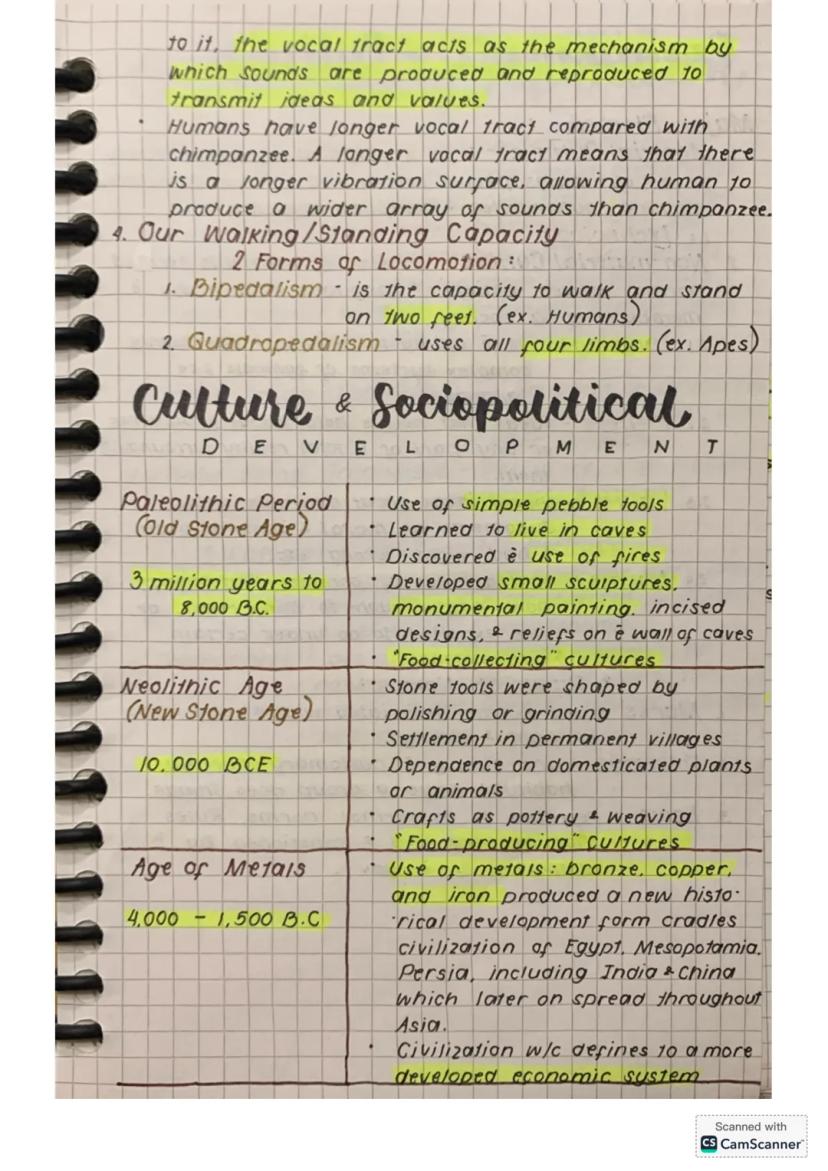 to it, the vocal tract acts as the mechanism by
which sounds are produced and reproduced to
transmit ideas and values.
· Humans have longer vocal tract compared with
chimpanzee. A longer vocal tract means that there
is a longer vibration surface, allowing human to
produce a wider array of sounds than chimpanzee.
4. Our Walking/Standing Capacity
2 Forms of Locomotion:
1. Bipedalism - is the capacity to walk and stand
on two feet. (ex. Humans)
2. Quadropedalism - uses all four limbs. (ex. Apes)
Culture & Sociopolitical
DEVELOPMENT
Paleolithic Period
(Old Stone Age)
3 million years to
8,000 B.C.
· Use of simple pebble tools
· Learned to live in caves
· Discovered ė use of fires
· Developed small sculptures,
monumental painting, incised
designs, & reliefs on ė wall of caves
· "Food-collecting" cultures
Neolithic Age
(New Stone Age)
10,000 BCE
· Stone tools were shaped by
polishing or grinding
· Settlement in permanent villages
· Dependence on domesticated plants
or animals
· Crafts as pottery & weaving
· "Food-producing" cultures
Age of Metals
4,000 - 1,500 B.C
· Use of metals: bronze, copper,
and iron produced a new histo-
rical development form cradles
civilization of Egypt, Mesopotamia,
Persia, including India & China
which later on spread throughout
Asia.
· Civilization w/c defines to a more
developed economic system
Scanned with
CS CamScanner